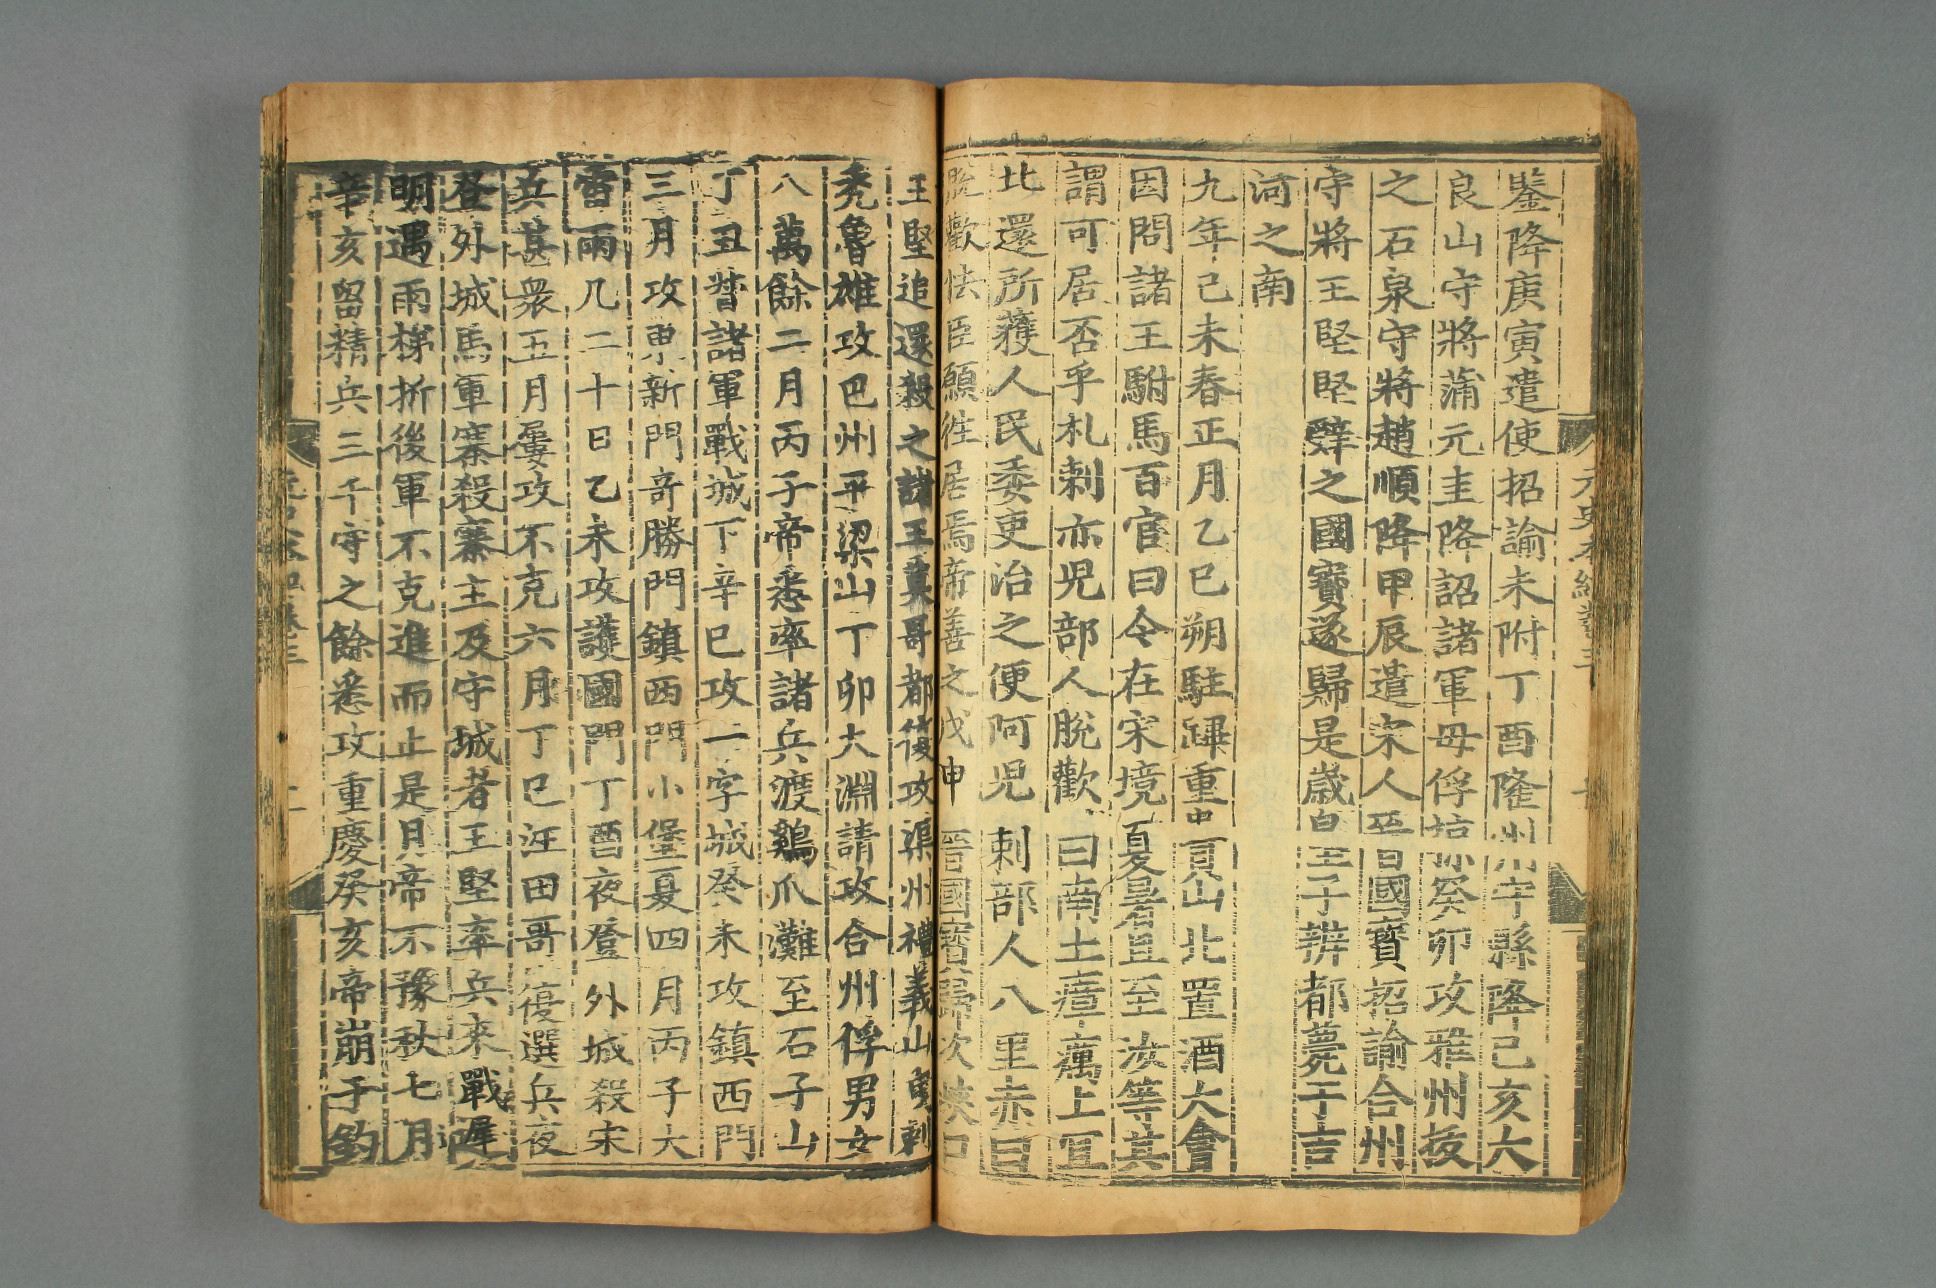 鑒降庚寅遣使招諭未附丁酉隆州守縣降己亥大
良山守將蒲元圭降詔諸軍毋俘掠癸卯攻雅州拔
之石泉守將趙順降甲辰遣宋人晋國寶招諭合州
守將王堅堅辭之國寶遂歸是歲皇子辨都薨于吉
河之南
九年己未春正月乙巳朔駐蹕重貴山北置酒大會
因問諸王駙馬百官曰今在宋境夏暑且至汝等其
謂可居否乎札剌亦兒部人脫歡曰南土瘴癘上宜
北還所獲人民委吏治之便阿兒剌部人八里赤曰
脫歡怯臣願往居焉帝善之戊申晉國寶歸次峽口
王堅追還殺之諸王莫哥都復攻渠州禮義山曳剌
禿魯雄攻巴州平梁山丁卯大淵請攻合州俘男女
八萬餘二月丙子帝悉率諸兵渡鷄爪灘至石子山
丁丑督諸軍戰城下辛巳攻一字城癸未攻鎮西門
三月攻東新門竒勝門鎮西門小堡夏四月丙子大
雷雨凡二十日乙未攻護國門丁酉夜登外城殺宋
兵甚衆五月屢攻不克六月丁巳汪田哥復選兵夜
登外城馬軍寨殺寨主及守城者王堅率兵來戰遲
明遇雨梯折後軍不克進而止是月帝不豫秋七月
辛亥留精兵三千守之餘悉攻重慶癸亥帝崩于釣